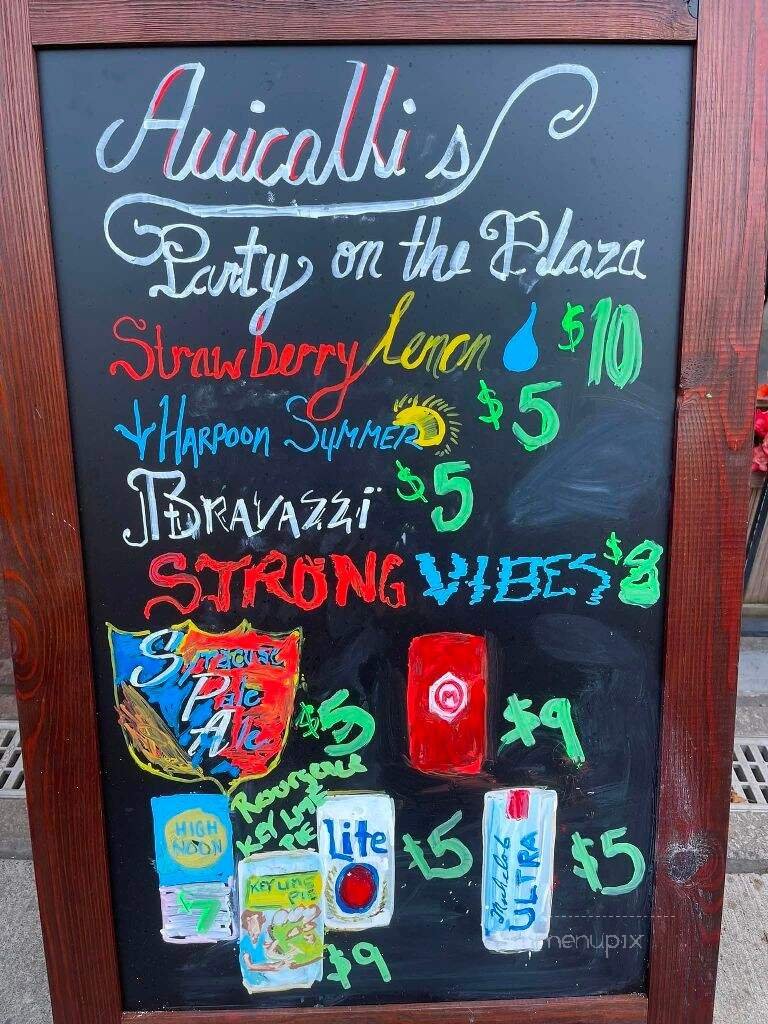 Avicolli's
Party on the Plaza
Strawberry Lemon $10
Harpoon Summer $5
Bravazzi $5
STRONG VIBES $8
Syracuse
Pale
Ale
$5
M
$9
Resurgence
KEY LIME
PIE
HIGH
NOON
7
KEY LIME
PIE
$9
Lite
$5
Michelob
ULTRA
$5
menupix